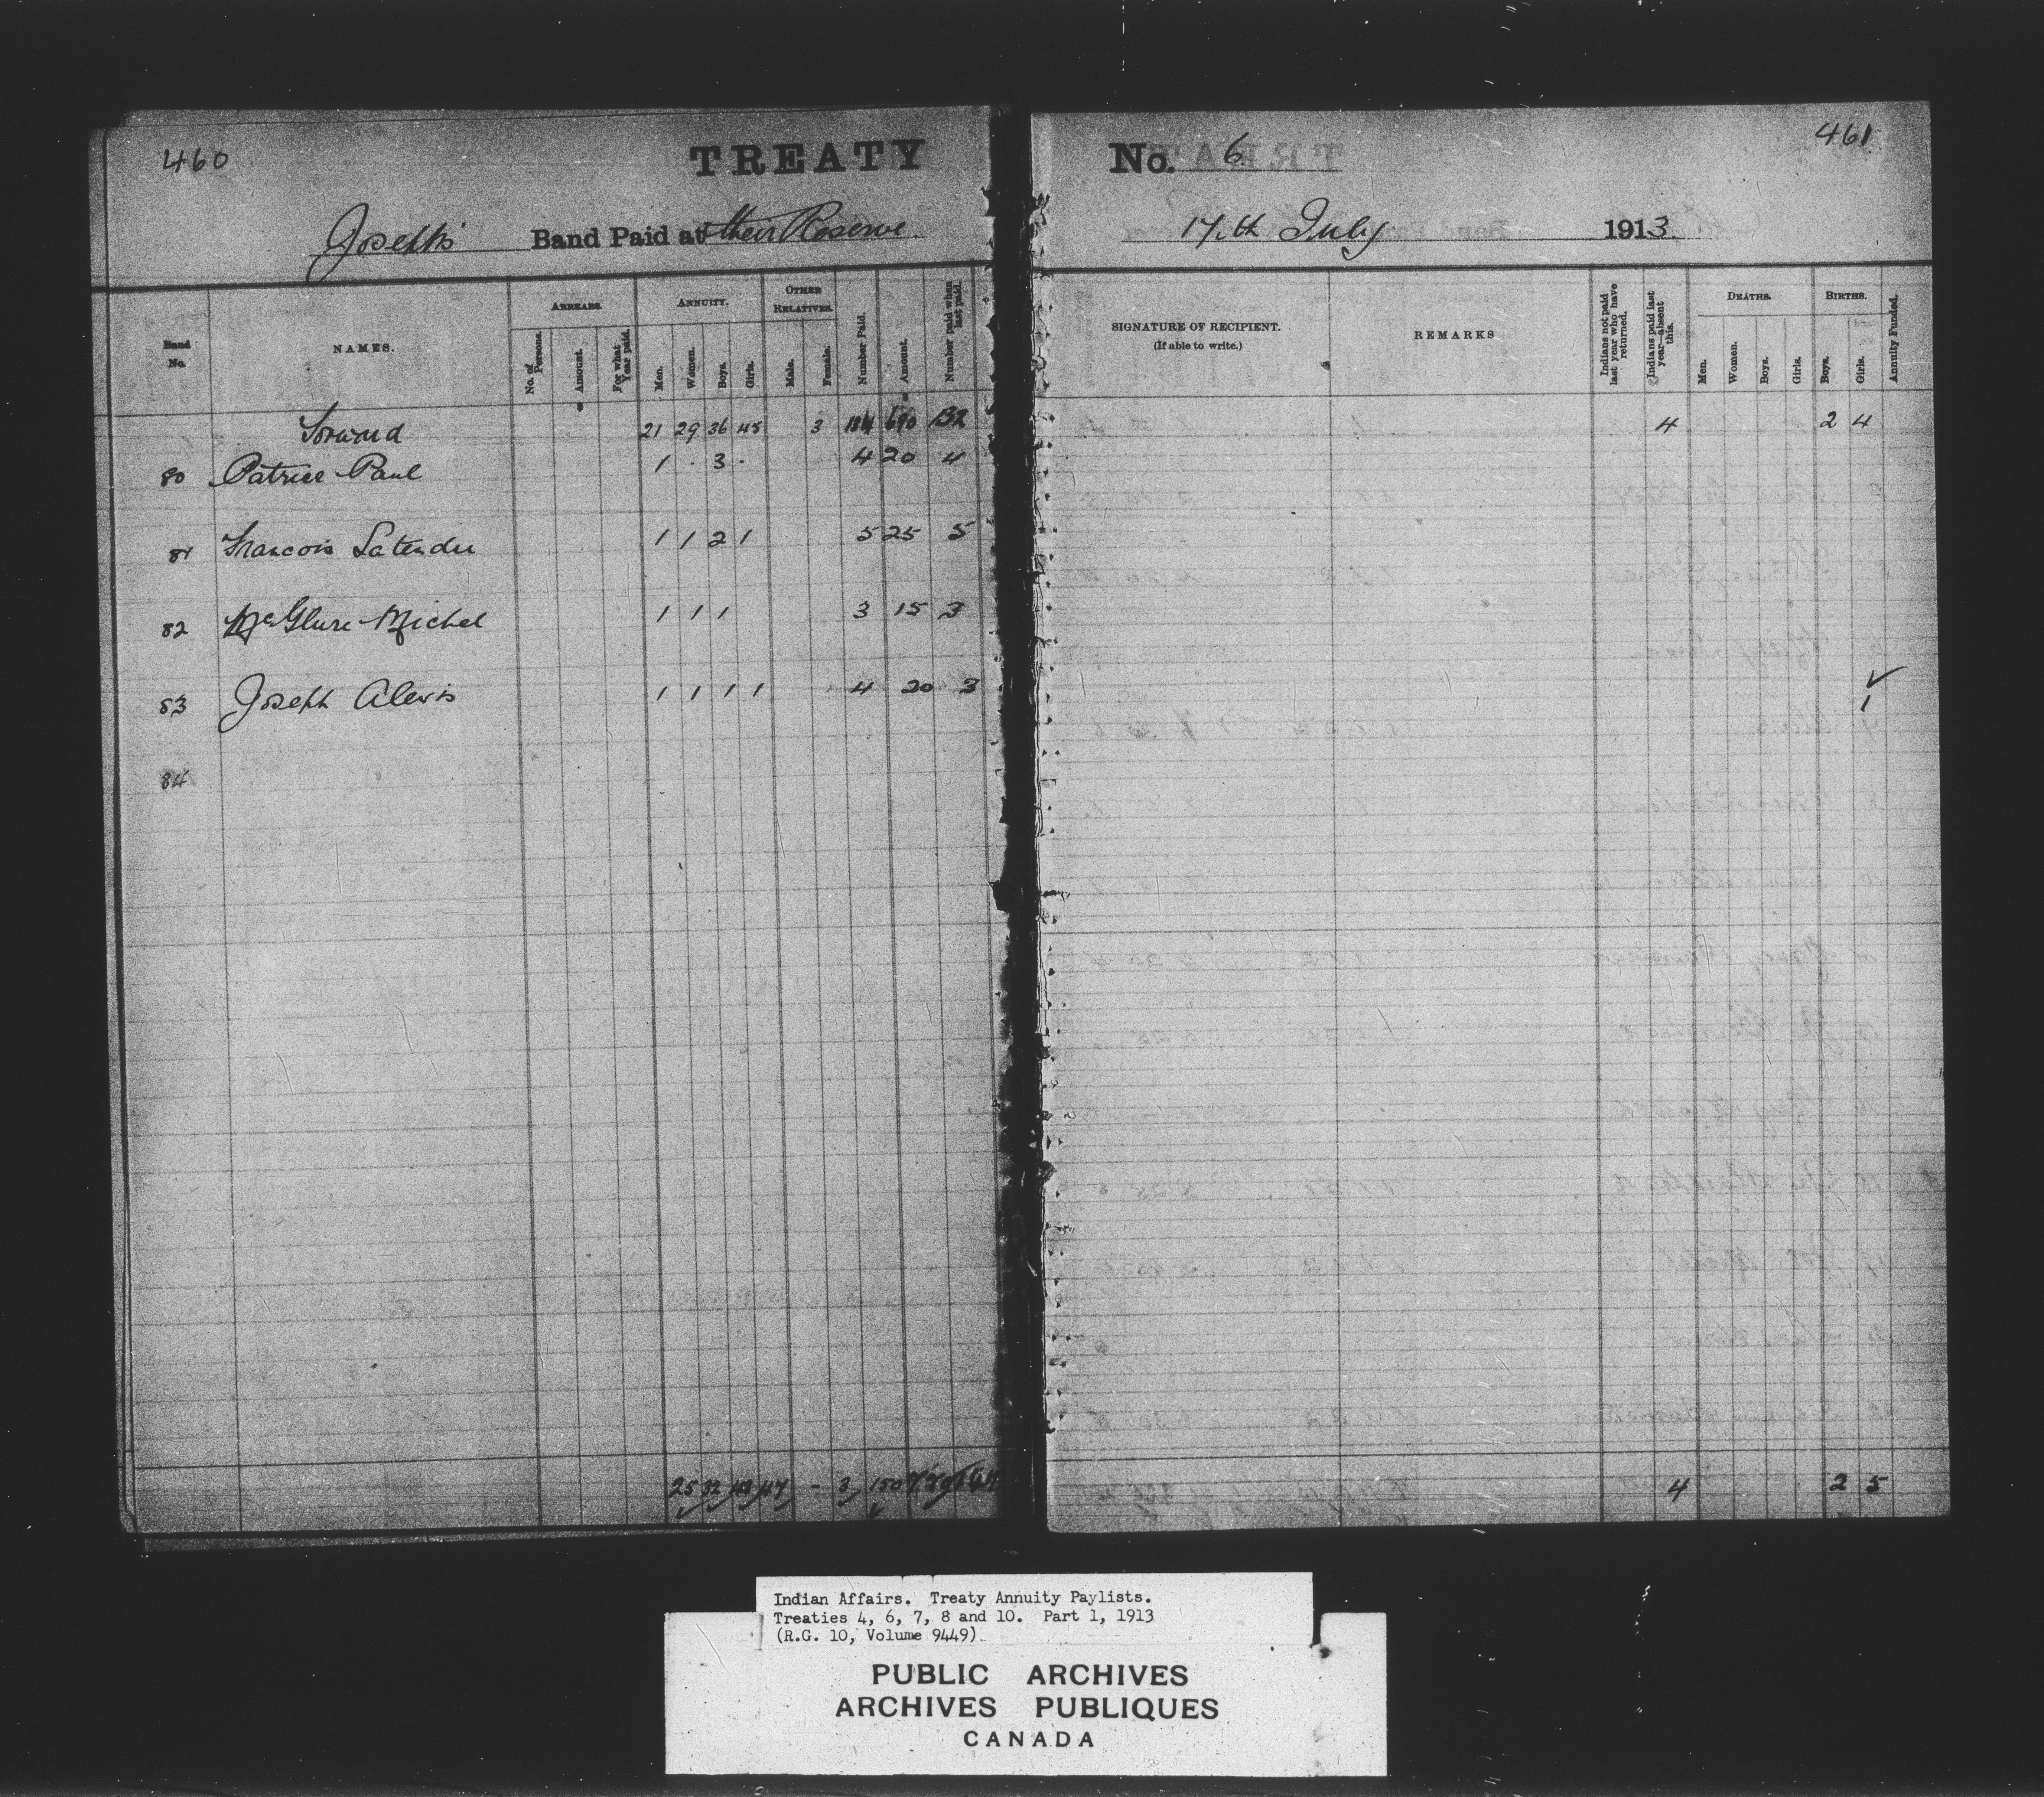 460
TREATY
No. 6
461
Joseph's Band Paid at their Reserve
17th July 1913
Band No.
NAMES.
ARREARS.
No. of Persons.
Amount.
For what Year paid.
ANNUITY.
Men.
Women.
Boys.
Girls.
OTHER RELATIVES.
Male.
Female.
Number Paid.
Amount.
Number paid when last paid.
SIGNATURE OF RECIPIENT.
(If able to write.)
REMARKS
Indians not paid last year who have returned.
Indians paid last year—absent this.
DEATHS.
Men.
Women.
Boys.
Girls.
BIRTHS.
Boys.
Girls.
Annuity Funded.
Forward 21 29 36 45 3 134 690 132 4 2 4
80 Patrice Paul 1 . 3 . 4 20 4
81 Francois Latendre 1 1 2 1 5 25 5
82 McGlure Michel 1 1 1 3 15 3
83 Joseph Alexis 1 1 1 1 4 20 3 1
84
25 32 43 47 - 3 150 4 2 5
Indian Affairs. Treaty Annuity Paylists.
Treaties 4, 6, 7, 8 and 10. Part 1, 1913
(R.G. 10, Volume 9449)
PUBLIC ARCHIVES
ARCHIVES PUBLIQUES
CANADA